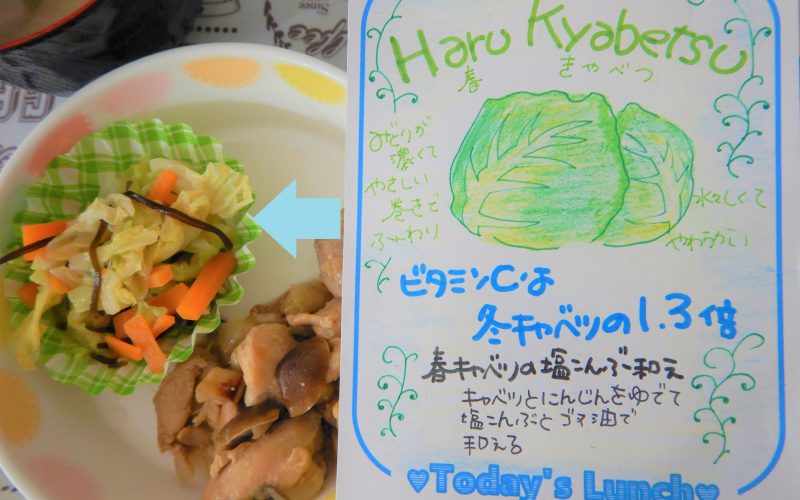 Haru Kyabetsu
春 きゃべつ
みどりが
濃くて
やさしい
巻きで
ふんわり
水々しくて
やわらかい
ビタミンCは
冬キャベツの1.3倍
春キャベツの塩こんぶ和え
キャベツとにんじんをゆでて
塩こんぶとゴマ油で
和える
♥Today's Lunch♥
Since